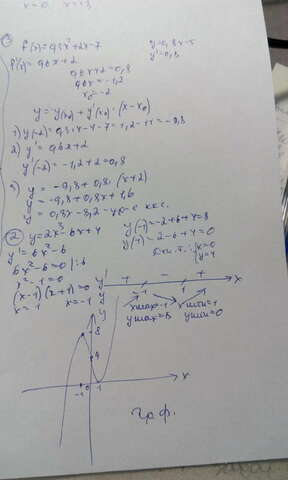 x=0
① f(x)=0,3x²+2x-7
y=0,8x-5
y'=0,8
f'(x)=0,6x+2
0,6x+2=0,8
0,6x=-1,2
x₀=-2
y=y(x₀)+y'(x₀)·(x-x₀)
1) y(-2)=0,3·4-4-7=1,2-11=-9,8
2) y'=0,6x+2
y'(-2)=-1,2+2=0,8
3) y=-9,8+0,8·(x+2)
y=-9,8+0,8x+1,6
y=0,8x-8,2-ур-е кас.
② y=2x³-6x+4
y(-1)=-2+6+4=8
y(1)=2-6+4=0
y'=6x²-6
6x²-6=0 |:6
x²-1=0
(x-1)(x+1)=0
x=1 x=-1
Доп.т.: x=0
y=4
y' + - + x
y -1 1
xmax=-1 xmin=1
ymax=8 ymin=0
y
8
4
-1 0 1 x
граф.